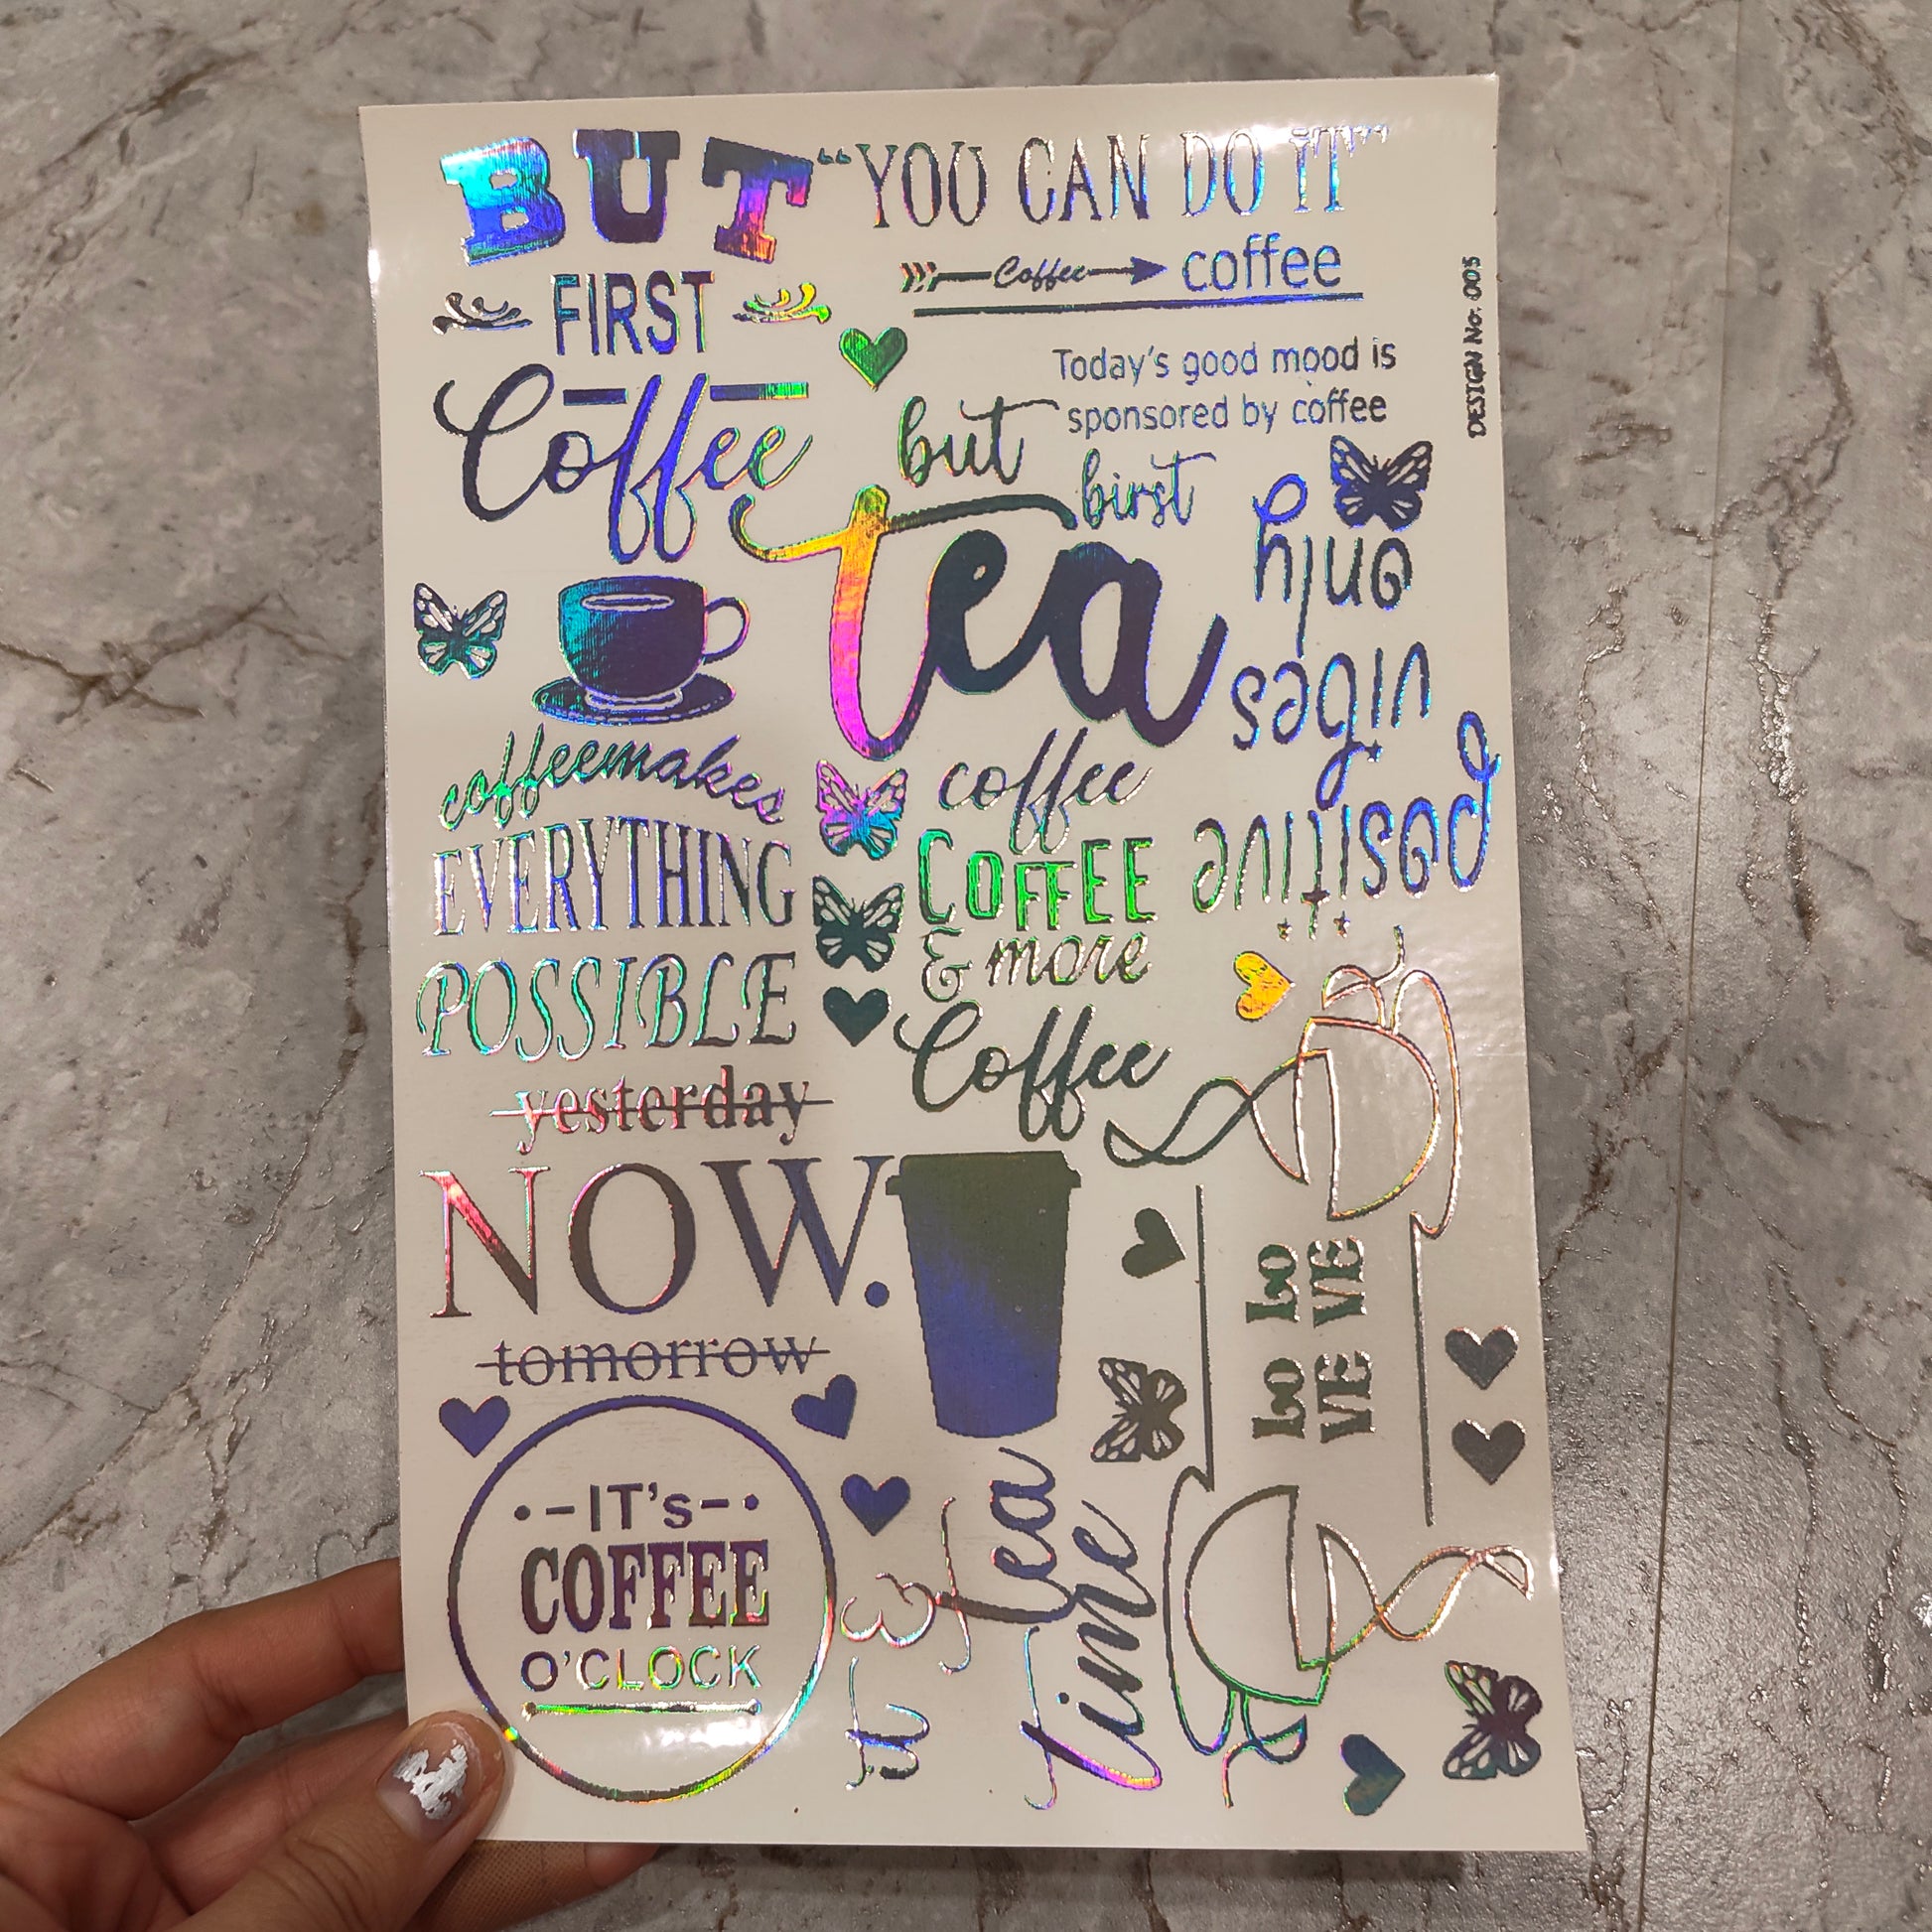 BUT
FIRST
Coffee
“YOU CAN DO IT”
Coffee coffee
Today's good mood is
sponsored by coffee
DESIGN No. 005
but
birst
tea
positive
vibes
only
coffeemakes
EVERYTHING
POSSIBLE
coffee
COFFEE
& more
Coffee
yesterday
NOW.
tomorrow
LO LO
VE VE
•–IT's–•
COFFEE
O'CLOCK
it's
tea
time